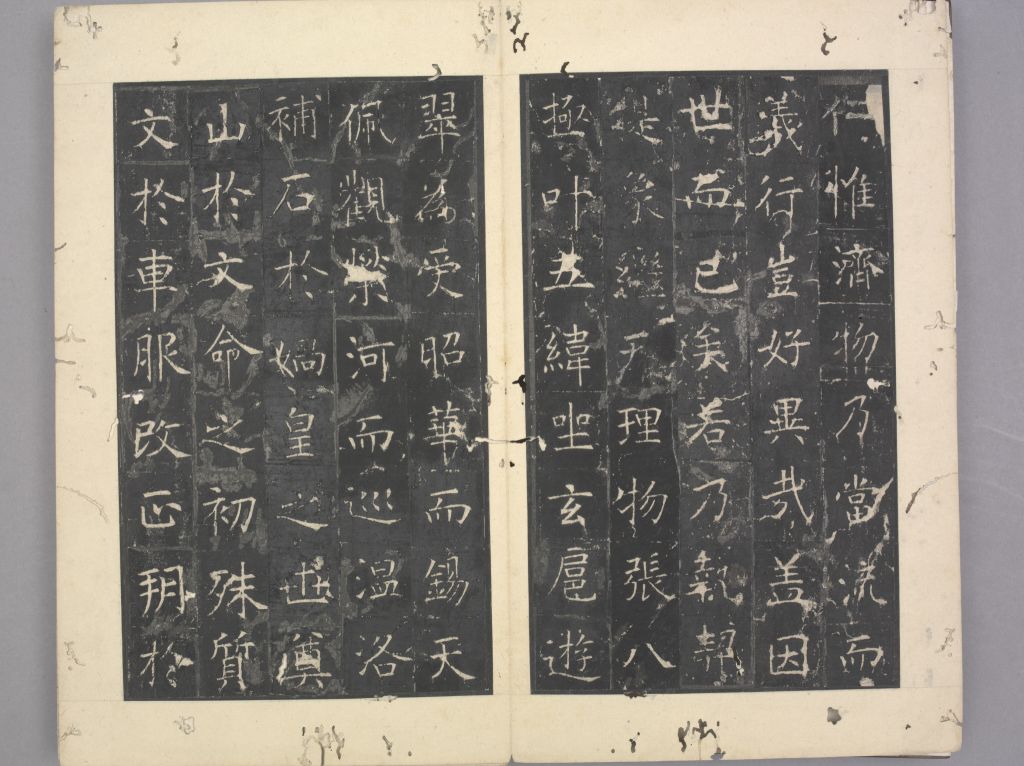 仁惟濟物乃當流而
義行豈好異哉盖因
世而已矣若乃執契
提象繼天理物張八
極叶五緯坐玄扈遊
翠為受昭華而錫天
佩觀榮河而巡温洛
補石於媧皇之世奠
山於文命之初殊質
文於車服改正朔於